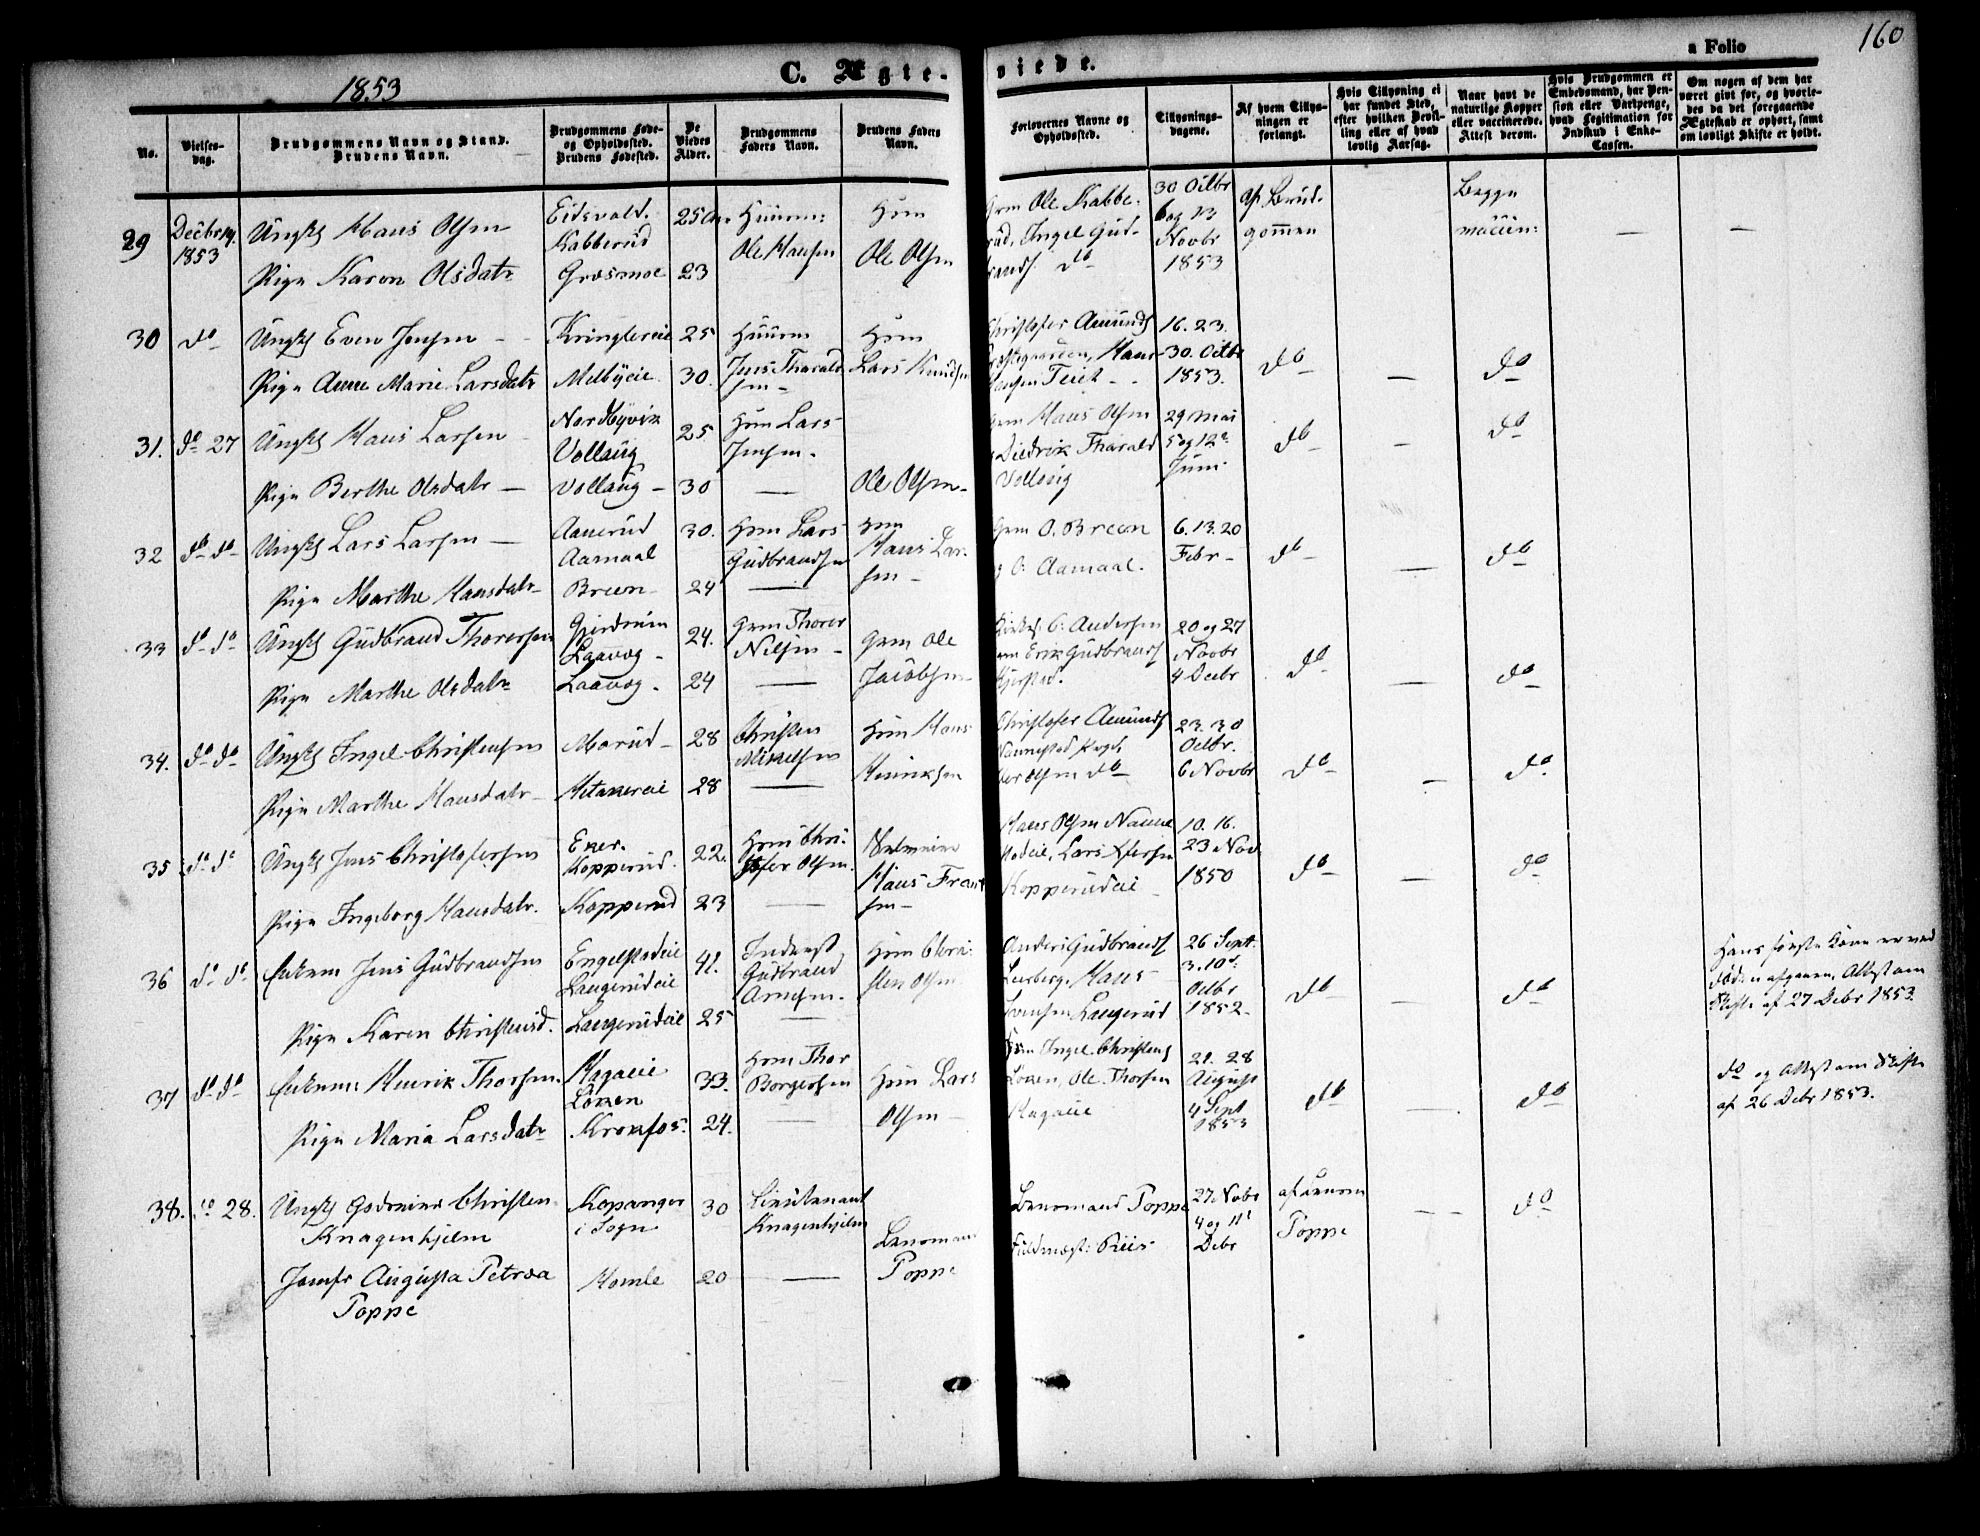 1853
C. Ægte-
viede.
a Folio
160
No.
Vielses-
dag.
Brudgommens Navn og Stand.
Brudens Navn.
Brudgommens Føde-
og Opholdssted.
Brudens Fødested.
De
Viedes
Alder.
Brudgommens
Faders Navn.
Brudens Faders
Navn.
Forlovernes Navne og
Opholdssted.
Tillysnings-
dagene.
Af hvem Tillys-
ningen er
forlangt.
Hvis Tillysning ei
har fundet Sted,
efter hvilken Bevil-
ling eller af hvad
lovlig Aarsag.
Naar havt de
naturlige Kopper
eller vaccinerede.
Attest derom.
Hvis Brudgommen er
Embedsmand, har Pen-
sion eller Vartpenge,
hvad Legitimation for
Indskud i Enke-
Cassen.
Om nogen af dem har
været gift før, og hvorle-
des da det foregaaende
Ægteskab er ophørt, samt
om lovligt Skifte er holdt.
29
Decbr 19.
1853
Ungk Hans Olsen
Pige Karen Olsdatr
Eidsvold.
Kabberud
Græsmoe
25 Aar
23
Huusm:
Ole Hansen
Hsm
Ole Olsen
Grm Ole Kabbe-
rud, Ingel Gud-
brands. do
30 Octbr
6 og 13
Novbr
1853
af Brud-
gommen
Begge
vaccin:
—
—
30
do
Ungk Even Jensen - -
Pige Anne Marie Larsdatr
Kringlereie
Melbyeie
25
30.
Huusm
Jens Tharald
sen -
Hsm
Lars Knudsen
Christofer Amunds
Hansen Teiet - -
16. 23.
30. Octbr
1853.
do
—
do
31.
do 27
Ungk Hans Larsen
Pige Berthe Olsdatr —
Nordbyvik
Vollaug
Vollaug -
25
30
Hsm Lars
Jensen.
—
Ole Olsen -
Grm Hans Olsen
Diedrik Tharald
Vollaug
29 Mai
5 og 12te
Juni.
do
—
do
32
do do
Ungk Lars Larsen —
Pige Marthe Hansdatr -
Aaserud
Aamaal
Breen -
30.
24
Hsm Lars
Gudbrandsen
—
Hsm
Hans Lar-
sen -
Grm O. Breen
og O: Aamaal.
6. 13. 20
Febr -
do
—
do
33
do do
Ungk Gudbrand Thorersen
Pige Marthe Olsdatr
Gjerdrum
Laavog -
Laavog -
24.
24
Grm Thorer
Nilsen -
—
Grm Ole
Jacobsen -
Kirkes. O: Andersen
Grm Erik Gudbrands
20 og 27
Novbr
4 Decbr
do
—
do
34.
do do
Ungk Ingel Christensen
Pige Marthe Hansdatr -
Morud -
Hetanereie
28
28
Christen
Mikelsen
—
Hsm Hans
Henriksen
Christofer Amunds
Nannestad Pregd
Olsen do
23. 30
Octbr.
6 Novbr
do
—
do
35
do do
Ungk Jens Christofersen
Pige Ingeborg Hansdatr.
Ener.
Kopperud.
Kopperud
22.
23
Hsm Chri-
stofer Olsen.
—
Hans Frant
sen -
Hans Olsen Nanne
stadeie, Lars
Kopperudeie
10. 16.
23 Nov
1850
do
—
do
36
do do
Enkem Jens Gudbrandsen
Pige Karen Christensd.
Engelstadeie
Langerudeie
Langerudeie
41.
25
Inderst
Gudbrand
Arnesen.
—
Hsm Chri-
sten Olsen
Anders Gudbrands
Leerberg. Hans
Langerud
26 Septr.
3. 10de
Octbr
1852.
do
—
do
Hans første Kone er ved
Døden afgaaen, Attest om
Skifte af 27 Debr 1853.
37
do do
Enkem: Henrik Thorsen.
Pige Maria Larsdatr
Hagaeie
Løken
Krokfos.
33.
24.
Hsm Thor
Borgersen
—
Hsm Lars
Olsen -
Hsm Ingel Christens
Løken, Ole Thorsen
Hagaeie
21. 28
August
4 Sept
1853
do
—
do
do og Attest om Skifte
af 26 Debr 1853.
38.
do 28.
Ungk Godseier Christen
Knagenhjelm
Jomfr Augusta Petrea
Poppe
Kopanger
i Sogn
Homle
30
20
Lieutenant
Knagenhjelm
—
Lensmand
Poppe
Lensmand Poppe
Fuldmægt: Riis
27 Novbr
4 og 11te
Debr
af
Poppe
— -
do